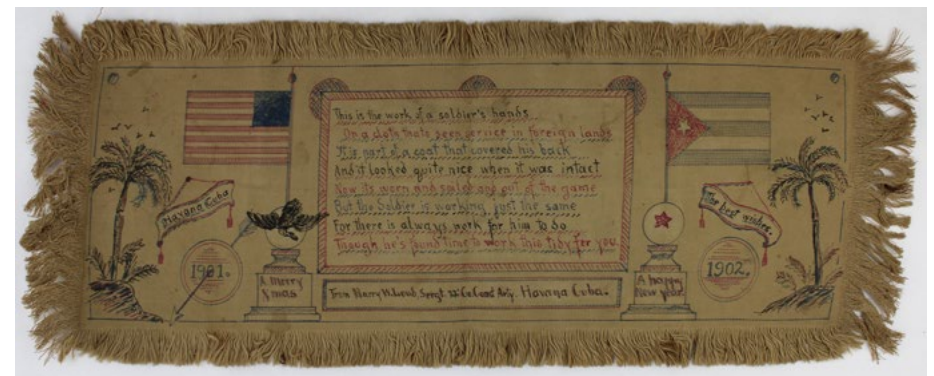 This is the work of a soldier's hands
On a cloth thats seen service in foreign lands
It is part of a coat that covered his back
And it looked quite nice when it was intact
Now its worn and soiled and out of the game
But the Soldier is working just the same
For there is always work for him to do
Though he's found time to work this tidy for you.
Havana Cuba
The best wishes.
1901.
1902.
A Merry
Xmas
A happy
New year
From Harry Sergt. Co Coast Arty. Havana Cuba.